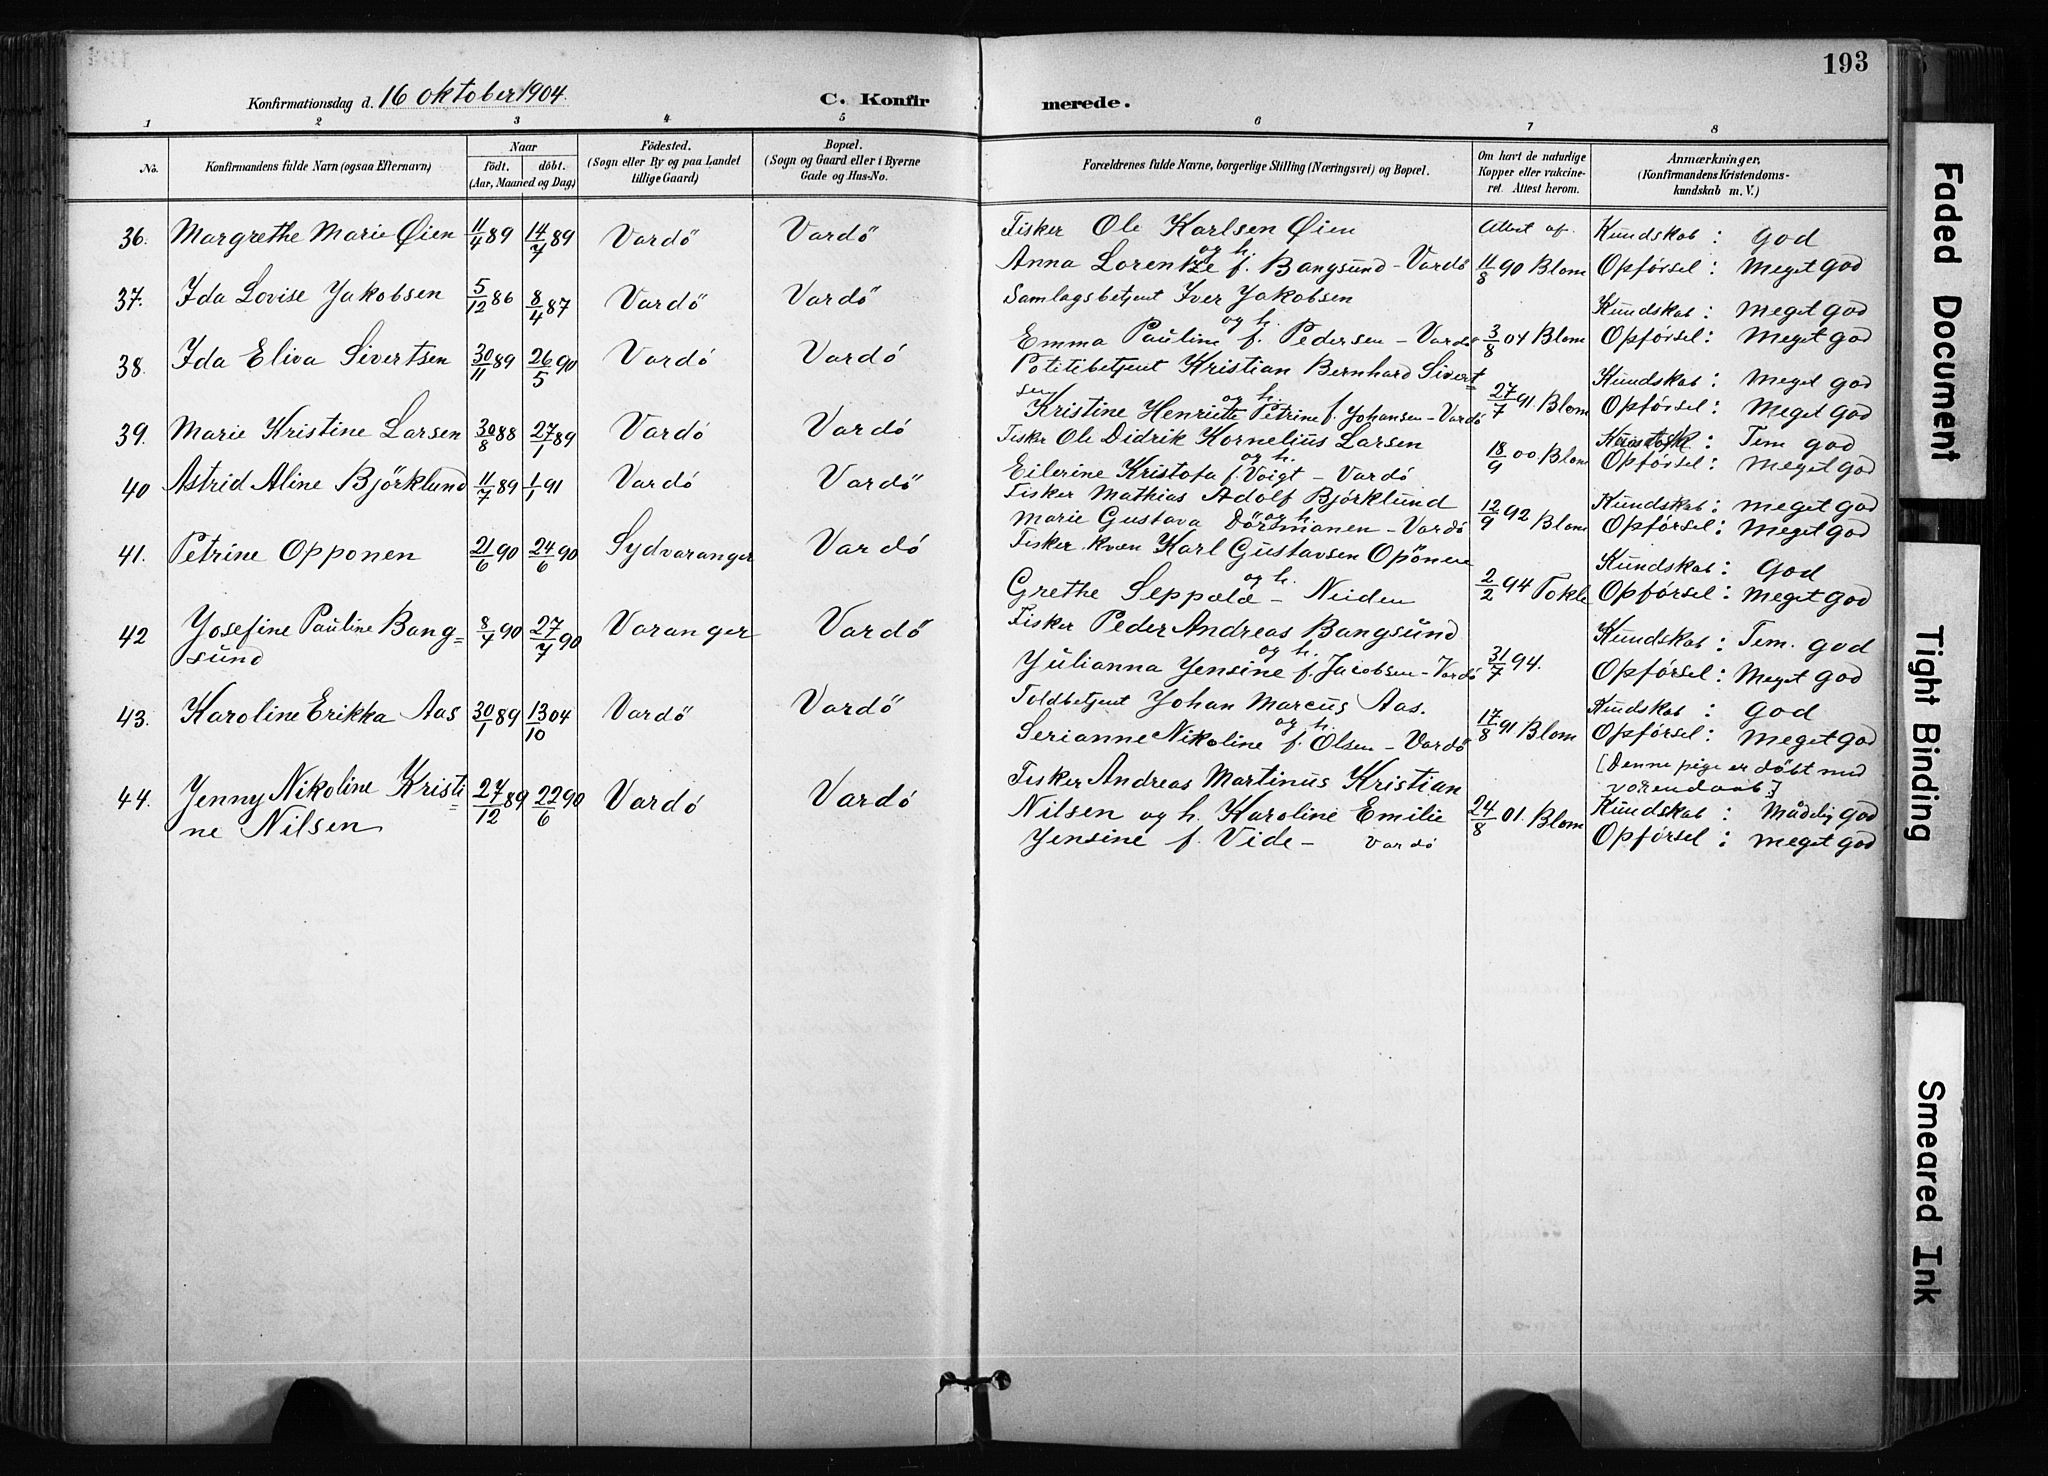 193
Konfirmationsdag d. 16 oktober 1904. C. Konfir merede.
1 2 3 4 5 6 7 8
No. Konfirmandens fulde Navn (ogsaa Efternavn) Naar født. døbt. (Aar, Maaned og Dag) Födested. (Sogn eller By og paa Landet tillige Gaard) Bopæl. (Sogn og Gaard eller i Byerne Gade og Hus-No. Forældrenes fulde Navne, borgerlige Stilling (Næringsvei) og Bopæl. Om havt de naturlige Kopper eller vakcineret. Attest herom. Anmærkninger. (Konfirmandens Kristendomskundskab m. V.)
36. Margrethe Marie Øien 11/4 89 14/7 89 Vardö Vardö Fisker Ole Karlsen Øien Attest af. Kundskab: god
og h.
Anna Lorentze f. Bangsund - Vardö 11/8 90 Blom Opførsel: Meget god
37. Ida Lovise Jakobsen 5/12 86 8/4 87 Vardö Vardö Samlagsbetjent Iver Jakobsen Kundskab: Meget god
og h.
Emma Pauline f. Pedersen - Vardö 3/8 04 Blom Opførsel: Meget god
38. Ida Eliva Sivertsen 30/11 89 26/5 90 Vardó Vardó Potitibetjent Kristian Bernhard Sivert= Kundskab: Meget god
sen og h.
Kristine Henriette Petrine f. Johansen - Vardö 27/7 91 Blom Opførsel: Meget god
39. Marie Kristine Larsen 30/8 88 27/1 89 Vardó Vardó Fisker Ole Didrik Kornelius Larsen Kundsk: Tem god
og h.
Eilerine Kristofa f. Voigt - Vardó 18/9 00 Blom Opførsel: Meget god
40 Astrid Aline Björklund 11/7 89 1/1 91 Vardó Vardö Fisker Mathias Adolf Bjórklund Kundskab: meget god
og h.
Marie Gustava Dörsmanen - Vardó 12/9 92 Blom Opførsel: Meget god
41. Petrine Opponen 21/6 90 24/6 90 Sydvaranger Vardó Fisker kven Karl Gustavsen Opönen Kundskab: god
og h.
Grethe Seppälä - Neiden 2/2 94 Tokle Opførsel: Meget god
42 Josefine Pauline Bang= 8/4 90 27/7 90 Varanger Vardö Fisker Peder Andreas Bangsund Kundskab: Tem. god
sund og h.
Julianna Jensine f. Jacobsen - Vardó 31/7 94. Opførsel: Meget god
43. Karoline Erikka Aas 30/1 89 13/10 04 Vardö Vardö Toldbetjent Johan Marcus Aas. Kundskab: god
og h.
Serianne Nikoline f. Olsen - Vardö 17/8 91 Blom Opførsel: Meget god
[Denne pige er döbt med
44. Jenny Nikoline Kristi= 27/12 89 22/6 90 Vardó Vardó Fisker Andreas Martinus Kristian
ne Nilsen Nilsen og h. Karoline Emilie 24/8 01. Blom Kundskab: Mådelig god
Jensine f. Vide - Vardó Opførsel: Meget god
Faded Document
Tight Binding
Smeared Ink